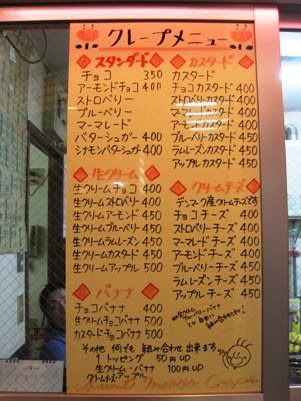 クレープメニュー
スタンダード
チョコ 350
アーモンドチョコ 400
ストロベリー
ブルーベリー
マーマレード
バターシュガー 400
シナモンバターシュガー 400
生クリーム
生クリームチョコ 400
生クリームストロベリー 400
生クリームアーモンド 450
生クリームブルーベリー 450
生クリームラムレーズン 450
生クリームカスタード 450
生クリームアップル 500
バナナ
チョコバナナ 400
生クリームチョコバナナ 500
カスタードチョコバナナ 500
カスタード
カスタード
チョコカスタード 400
ストロベリーカスタード 400
マーマレードカスタード 400
アーモンドカスタード 400
ブルーベリーカスタード 450
ラムレーズンカスタード 450
アップルカスタード 450
クリームチーズ
デンマーク産クリームチーズです
チョコチーズ 400
ストロベリーチーズ 400
マーマレードチーズ 400
アーモンドチーズ 400
ブルーベリーチーズ 450
ラムレーズンチーズ 450
アップルチーズ 450
その他 何でも 組み合わせ 出来ます
1トッピング 50円UP
生クリーム・バナナ 100円UP
クリームチーズ・アップル